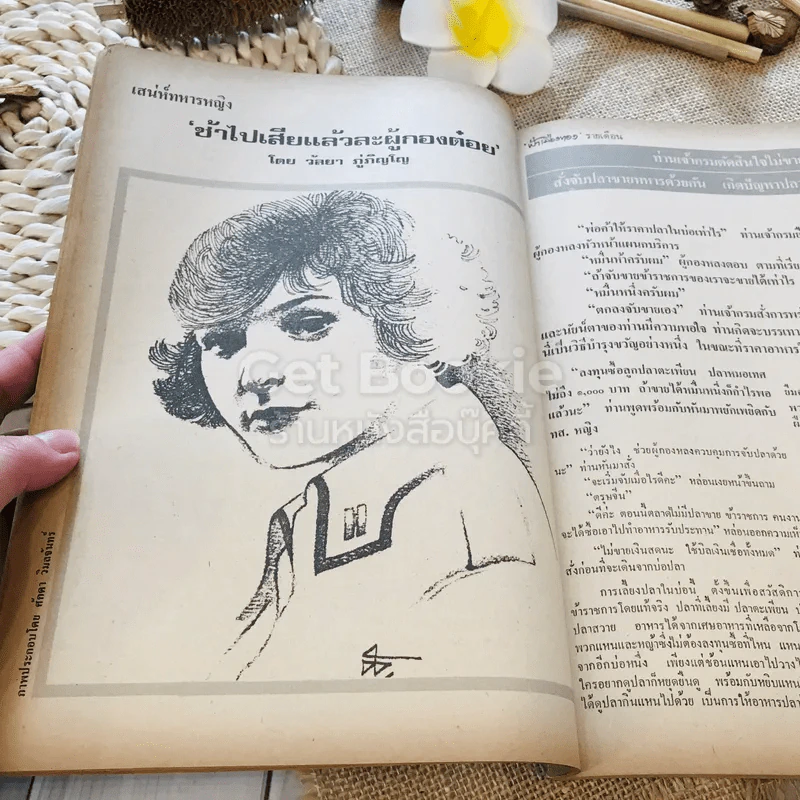 เสน่ห์ทหารหญิง
'ช้าไปเสียแล้วละผู้กองต๋อย'
โดย วัลยา ภู่ภิญโญ
ภาพประกอบโดย ศักดา วิมลจันทร์
Get Bookie
ร้านหนังสือบุ๊คกี้
รายเดือน
ท่านเจ้ากรมตัดสินใจไม่ขาย
สั่งจับปลาขายทหารด้วยกัน เกิดปัญหาปลา
"พ่อค้าให้ราคาปลาในบ่อเท่าไร" ท่านเจ้ากรม
ผู้กองหลงหัวหน้าแผนกบริการ
"หมื่นห้าครับผม" ผู้กองหลงตอบ ตามที่
"ถ้าจับขายข้าราชการของเราจะขายได้เท่าไร
"หมื่นหนึ่งครับผม"
"ตกลงจับขายเอง" ท่านเจ้ากรมสั่งการ
และนัยน์ตาของท่านมีความพอใจ ท่านคิดจะบรรเทา
นี่เป็นวิธีบำรุงขวัญอย่างหนึ่ง ในขณะที่ราคาอาหาร
"ลงทุนซื้อลูกปลาตะเพียน ปลาหมอเทศ
ไม่ถึง ๑,๐๐๐ บาท ถ้าขายได้หมื่นหนึ่งก็กำไรพอ
แล้วนะ" ท่านพูดพร้อมกับหันมาพยักเพยิดกับ
ทส. หญิง
"ว่ายังไง ช่วยผู้กองหลงควบคุมการจับปลาด้วย
นะ" ท่านหันมาสั่ง
"จะเริ่มจับเมื่อไรดีคะ" หล่อนเงยหน้าขึ้นถาม
"ตรุษจีน"
"ดีค่ะ ตอนนี้ตลาดไม่มีปลาขาย ข้าราชการ คนงาน
จะได้ซื้อเอาไปทำอาหารรับประทาน" หล่อนออกความเห็น
"ไม่ขายเงินสดนะ ใช้บิลเงินเชื่อทั้งหมด"
สั่งก่อนที่จะเดินจากบ่อปลา
การเลี้ยงปลาในบ่อนี้ ตั้งขึ้นเพื่อสวัสดิการ
ข้าราชการโดยแท้จริง ปลาที่เลี้ยงมี ปลาตะเพียน
ปลาสวาย อาหารได้จากเศษอาหารที่เหลือจาก
พวกแหนและหญ้าซึ่งไม่ต้องลงทุนซื้อที่ไหน
จากอีกบ่อหนึ่ง เพียงแต่ช้อนแหนเอาไปวาง
ใครอยากดูปลาก็หยุดยืนดู พร้อมกับหยิบแหน
ได้ดูปลากินแหนไปด้วย เป็นการให้อาหารปลา